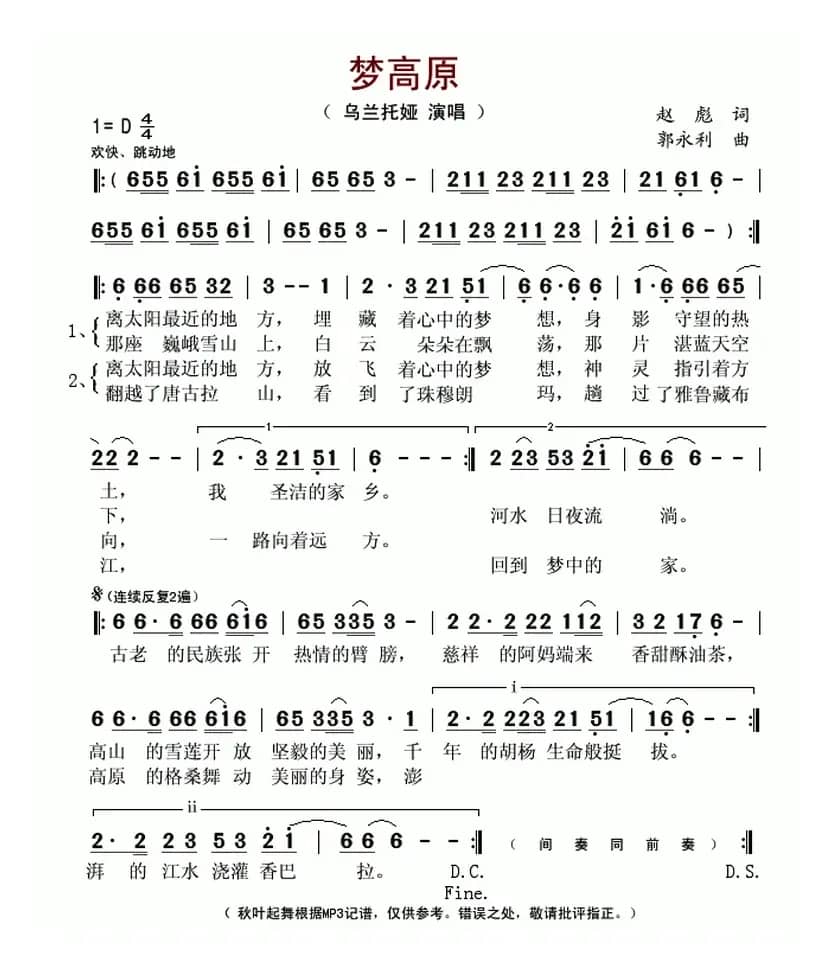 梦高原
（ 乌兰托娅 演唱 ）
赵 彪 词
1= D 4/4
郭永利 曲
欢快、跳动地
‖:( 655 61 655 61 | 65 65 3 - | 211 23 211 23 | 21 61 6 - |
655 61 655 61 | 65 65 3 - | 211 23 211 23 | 21 61 6 - ) :‖
‖: 6 66 65 32 | 3 - - 1 | 2 · 3 21 51 | 6 6 · 6 6 | 1 · 6 66 65 |
1、 离太阳最近的地 方， 埋 藏 着心中的梦 想，身 影 守望的热
那座 巍峨雪山 上，白 云 朵朵在飘 荡，那 片 湛蓝天空
2、 离太阳最近的地 方，放 飞 着心中的梦 想，神 灵 指引着方
翻越了唐古拉 山，看 到 了珠穆朗 玛，趟 过 了雅鲁藏布
1 2
22 2 - - | 2 · 3 21 51 | 6 - - - :‖ 2 23 53 21 | 6 6 6 - |
土， 我 圣洁的家 乡。
下， 河水 日夜流 淌。
向， 一 路向着远 方。
江， 回到 梦中的 家。
𝄋(连续反复2遍)
‖: 6 6 · 6 66 616 | 65 335 3 - | 2 2 · 2 22 112 | 3 2 17 6 - |
古老 的民族张 开 热情的臂 膀， 慈祥 的阿妈端来 香甜酥油茶，
i
6 6 · 6 66 616 | 65 335 3 · 1 | 2 · 2 223 21 51 | 16 6 - - :‖
高山 的雪莲开 放 坚毅的美 丽，千 年 的胡杨 生命般挺 拔。
高原 的格桑舞 动 美丽的身 姿，澎
ii
2 · 2 23 53 2 1 | 6 6 6 - - :‖ （ 间 奏 同 前 奏 ） :‖
湃 的 江水 浇灌 香巴 拉。 D.C. D.S.
Fine.
（ 秋叶起舞根据MP3记谱，仅供参考。错误之处，敬请批评指正。）